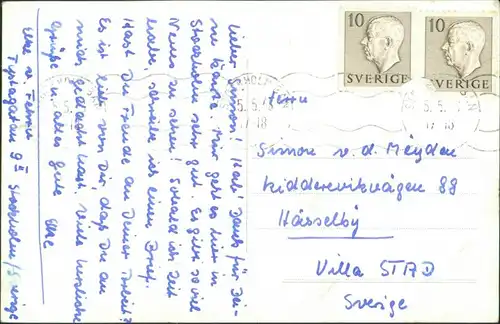 Lieber Simon! Hab' Dank für Dei-
ne Karte. Mir geht es hier in
Stockholm sehr gut. Es gibt so viel
Neues zu sehen! Sobald ich Zeit
habe, schreibe ich einen Brief.
Hast Du Freude an Deiner Arbeit?
Es ist lieb von Dir, daß Du an
mich gedacht hast. Viele herzliche
Grüße u. alles gute Elke
Elke v.
Tystagatan 9 II Stockholm / Sverige
10
SVERIGE
10
SVERIGE
5.5.
17-18
5.5.
17-18
Herrn
Simon v. d. Meyden
Ridderviksvägen 88
Hässelby
Villa STAD
Sverige